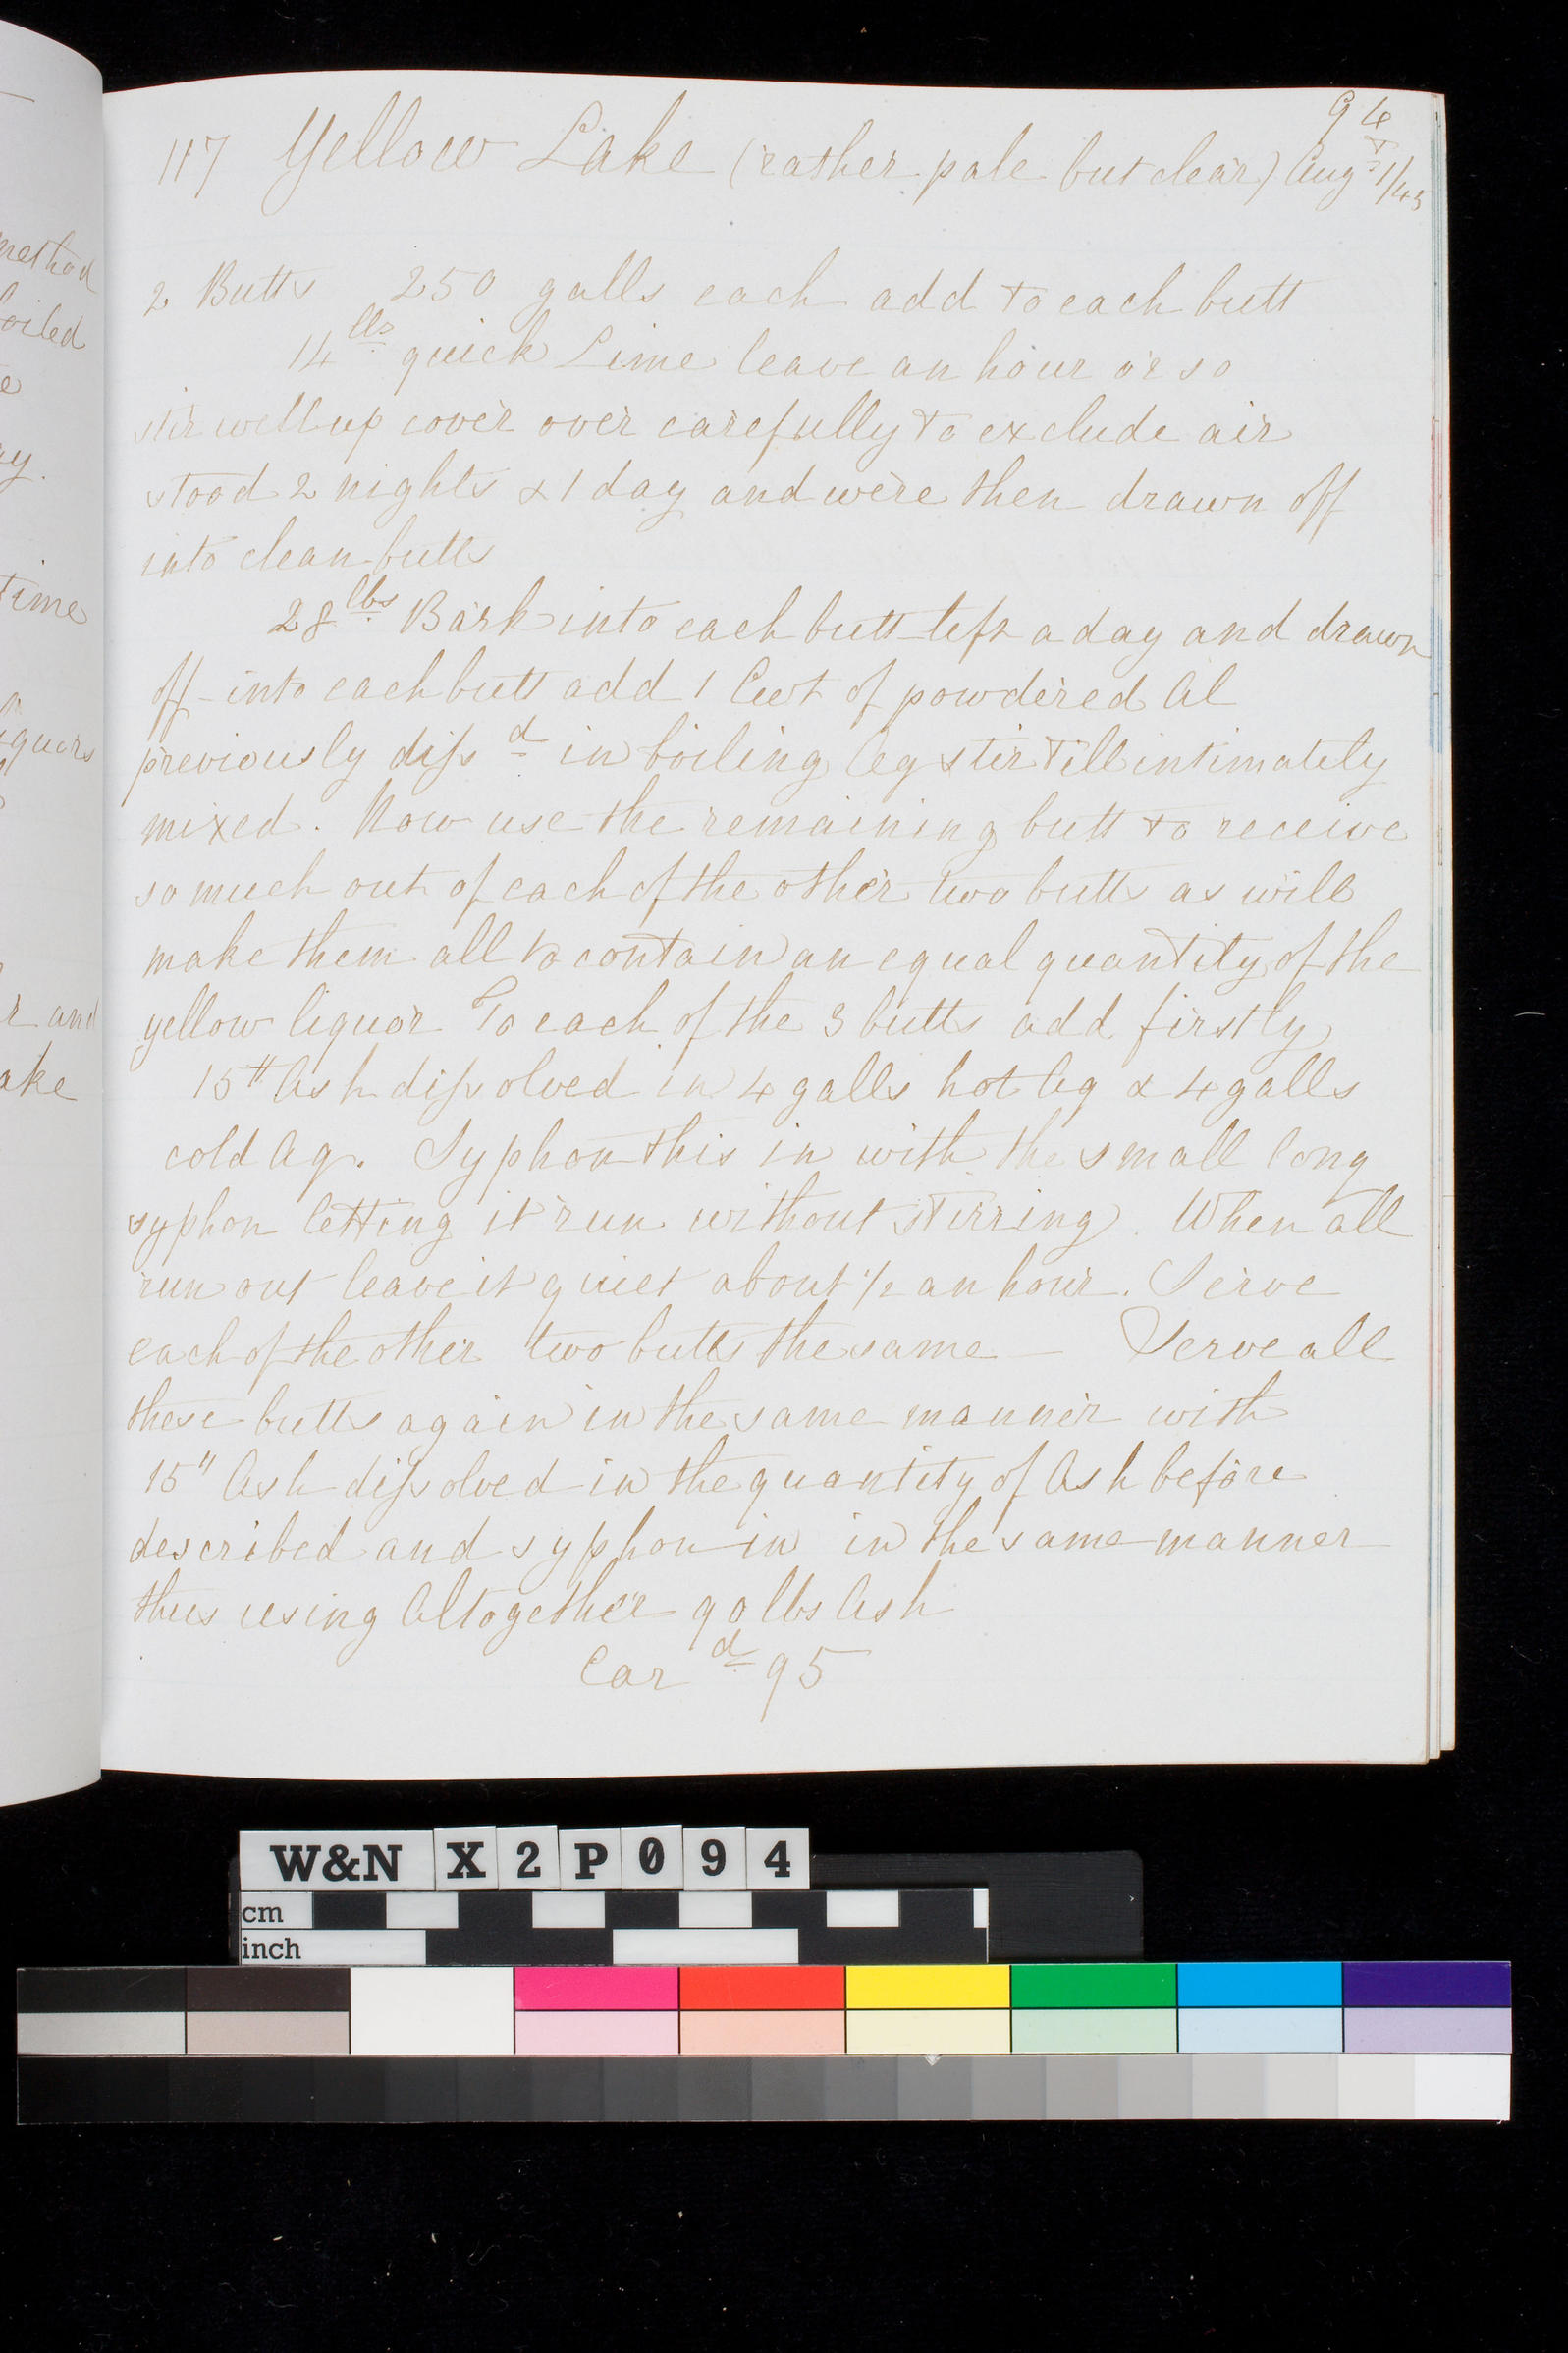 94
117 Yellow Lake (rather pale but clear) Aug.t 1/43
2 Butts 250 galls each add to each butt
14 lbs quick Lime leave an hour or so
stir well up cover over carefully to exclude air
stood 2 nights & 1 day and were then drawn off
into clean butts
28 lbs Bark into each butt left a day and drawn
off into each butt add 1 Cwt of powdered Al
previously diss d in boiling Aq stir till intimately
mixed. Now use the remaining butt to receive
so much out of each of the other two butts as will
make them all to contain an equal quantity of the
yellow liquor To each of the 3 butts add firstly
15 " Ash dissolved in 4 galls hot Aq & 4 galls
cold Aq. Syphon this in with the small long
syphon letting it run without stirring. When all
run out leave it quiet about 1/2 an hour. Serve
each of the other two butts the same — Serve all
these butts again in the same manner with
15 " Ash dissolved in the quantity of Ash before
described and syphon in in the same manner
thus using Altogether 90 lbs Ash
Car d 95
method
boiled
e
ay.
time
iquors
r and
ake
W&N X2P094
cm
inch